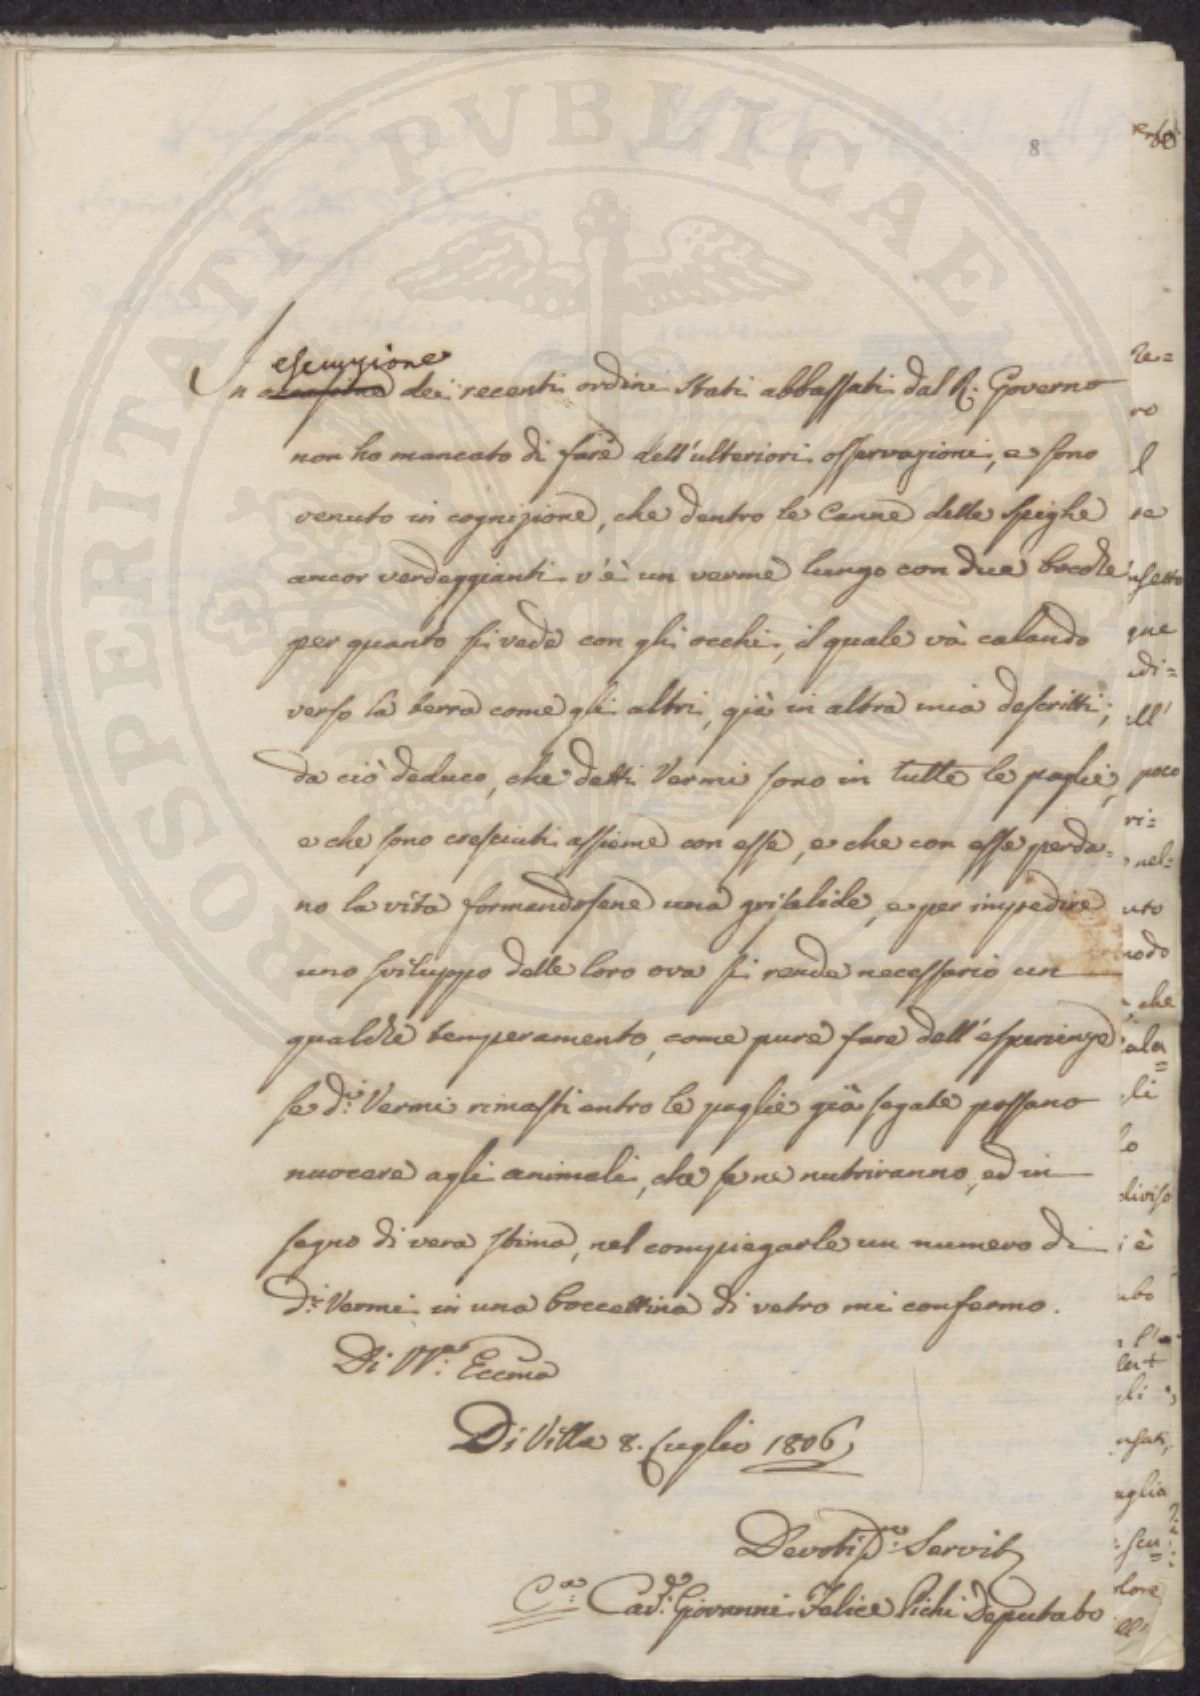 8
esecuzione
In dei recenti ordini stati abbassati dal R. Governo
non ho mancato di fare dell'ulteriori osservazioni, e sono
venuto in cognizione, che dentro le Canne delle spighe
ancor verdeggianti v'è un verme lungo con due bocche
per quanto si vede con gli occhi, il quale và calando
verso la terra come gli altri, già in altra mia descritti;
da ciò deduco, che detti Vermi sono in tutte le paglie,
e che sono cresciuti assieme con esse, e che con esse perda=
no la vita formandosene una griselide, e per impedire
uno sviluppo delle loro ova si rende necessario un
qualche temperamento, come pure fare dell'esperienze
se d.i Vermi rimasti entro le paglie già segate possano
nuocere agli animali, che se ne nutriranno, ed in
segno di vera stima, nel compiegarle un numero di
d.i Vermi in una boccettina di vetro mi confermo.
Di V.ra Eccma
Di Villa 8. Luglio 1806
Devoti.mo Servit
C.a Cav.e Giovanni Felice Pichi Deputato
PROSPERITATI PVBLICAE